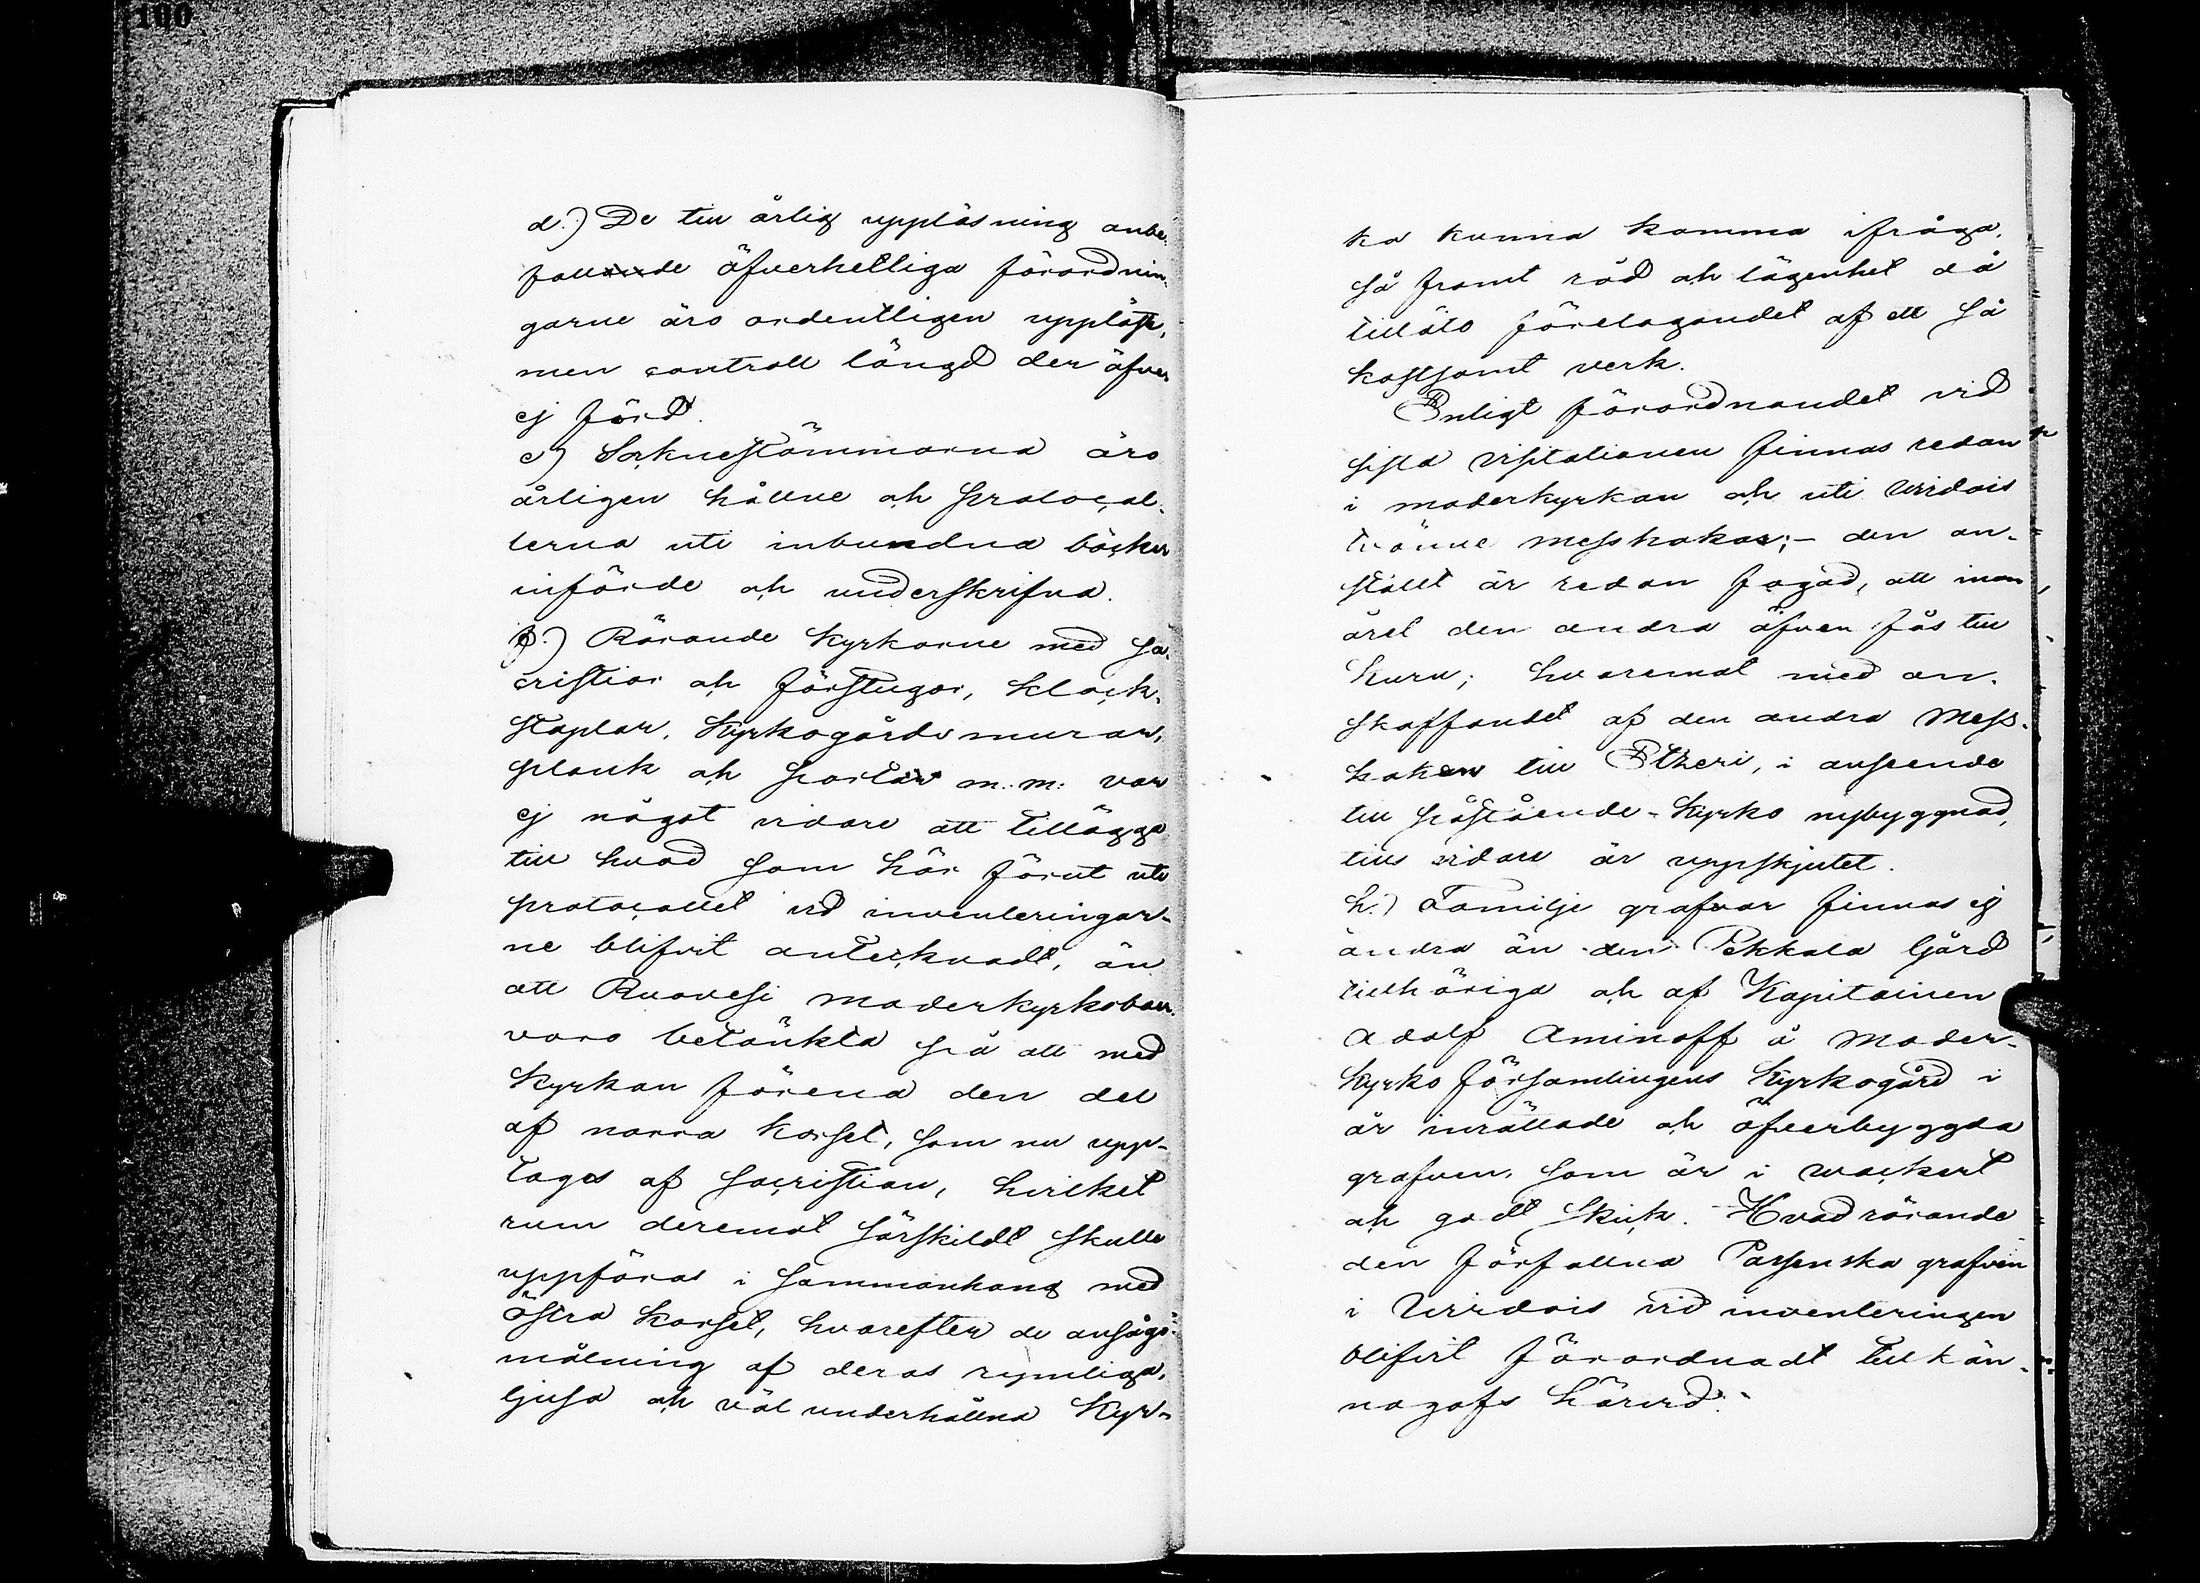 100
d.) De till årlig uppläsning anbe-
fallande öfverhetliga förordnin-
garne äro ordentligen uppläste,
men controll längd der öfver
ej förd.
e) Soknestämmorna äro
årligen hållne och protocol-
lerna uti inbundna böcker
införde och underskrifna.
f.) Rörande kyrkorne med sa-
cristior och förstugor, klock-
staplar, kyrkogårds murar,
plank och portar m. m: var
ej något vidare att tillägga
till hvad som här förut uti
protocollet vid inventeringar-
ne blifvit antecknadt, än
att Ruovesi moderkyrkobor
voro betänkta på att med
kyrkan förena den del
af norra korset, som nu upp-
tages af sacristian, hvilket
rum deremot särskildt skulle
uppföras i sammanhang med
östra korset, hvarefter de ansågo
målning af deras rymliga,
ljusa och väl underhållna kyr-
ka kunna komma ifråga,
så framt råd och lägenhet då
tilläto företagandet af ett så
kostsamt verk.
Enligt förordnandet vid
sista visitationen finnas redan
i moderkyrkan och uti Virdois
tvänne messhakar; – den an-
stallt är redan fogad, att inom
året den andra äfven fås till
Kuru; hvaremot med an-
skaffandet af den andra mess-
haken till Etzeri, i anseende
till påstående kyrko nybyggnad,
till vidare är uppskjutet.
h.) Familje grafvar finnas ej
andra än den Pekkala Gård
tillhöriga och af Kapitainen
Adolf Aminoff å moder-
kyrko församlingens kyrkogård i
år inrättade och öfverbyggda
grafven, som är i wackert
och godt skick. Hvad rörande
den förfallna Passenska grafven
i Virdois vid inventeringen
blifvit förordnadt till kän-
nagafs härvid.